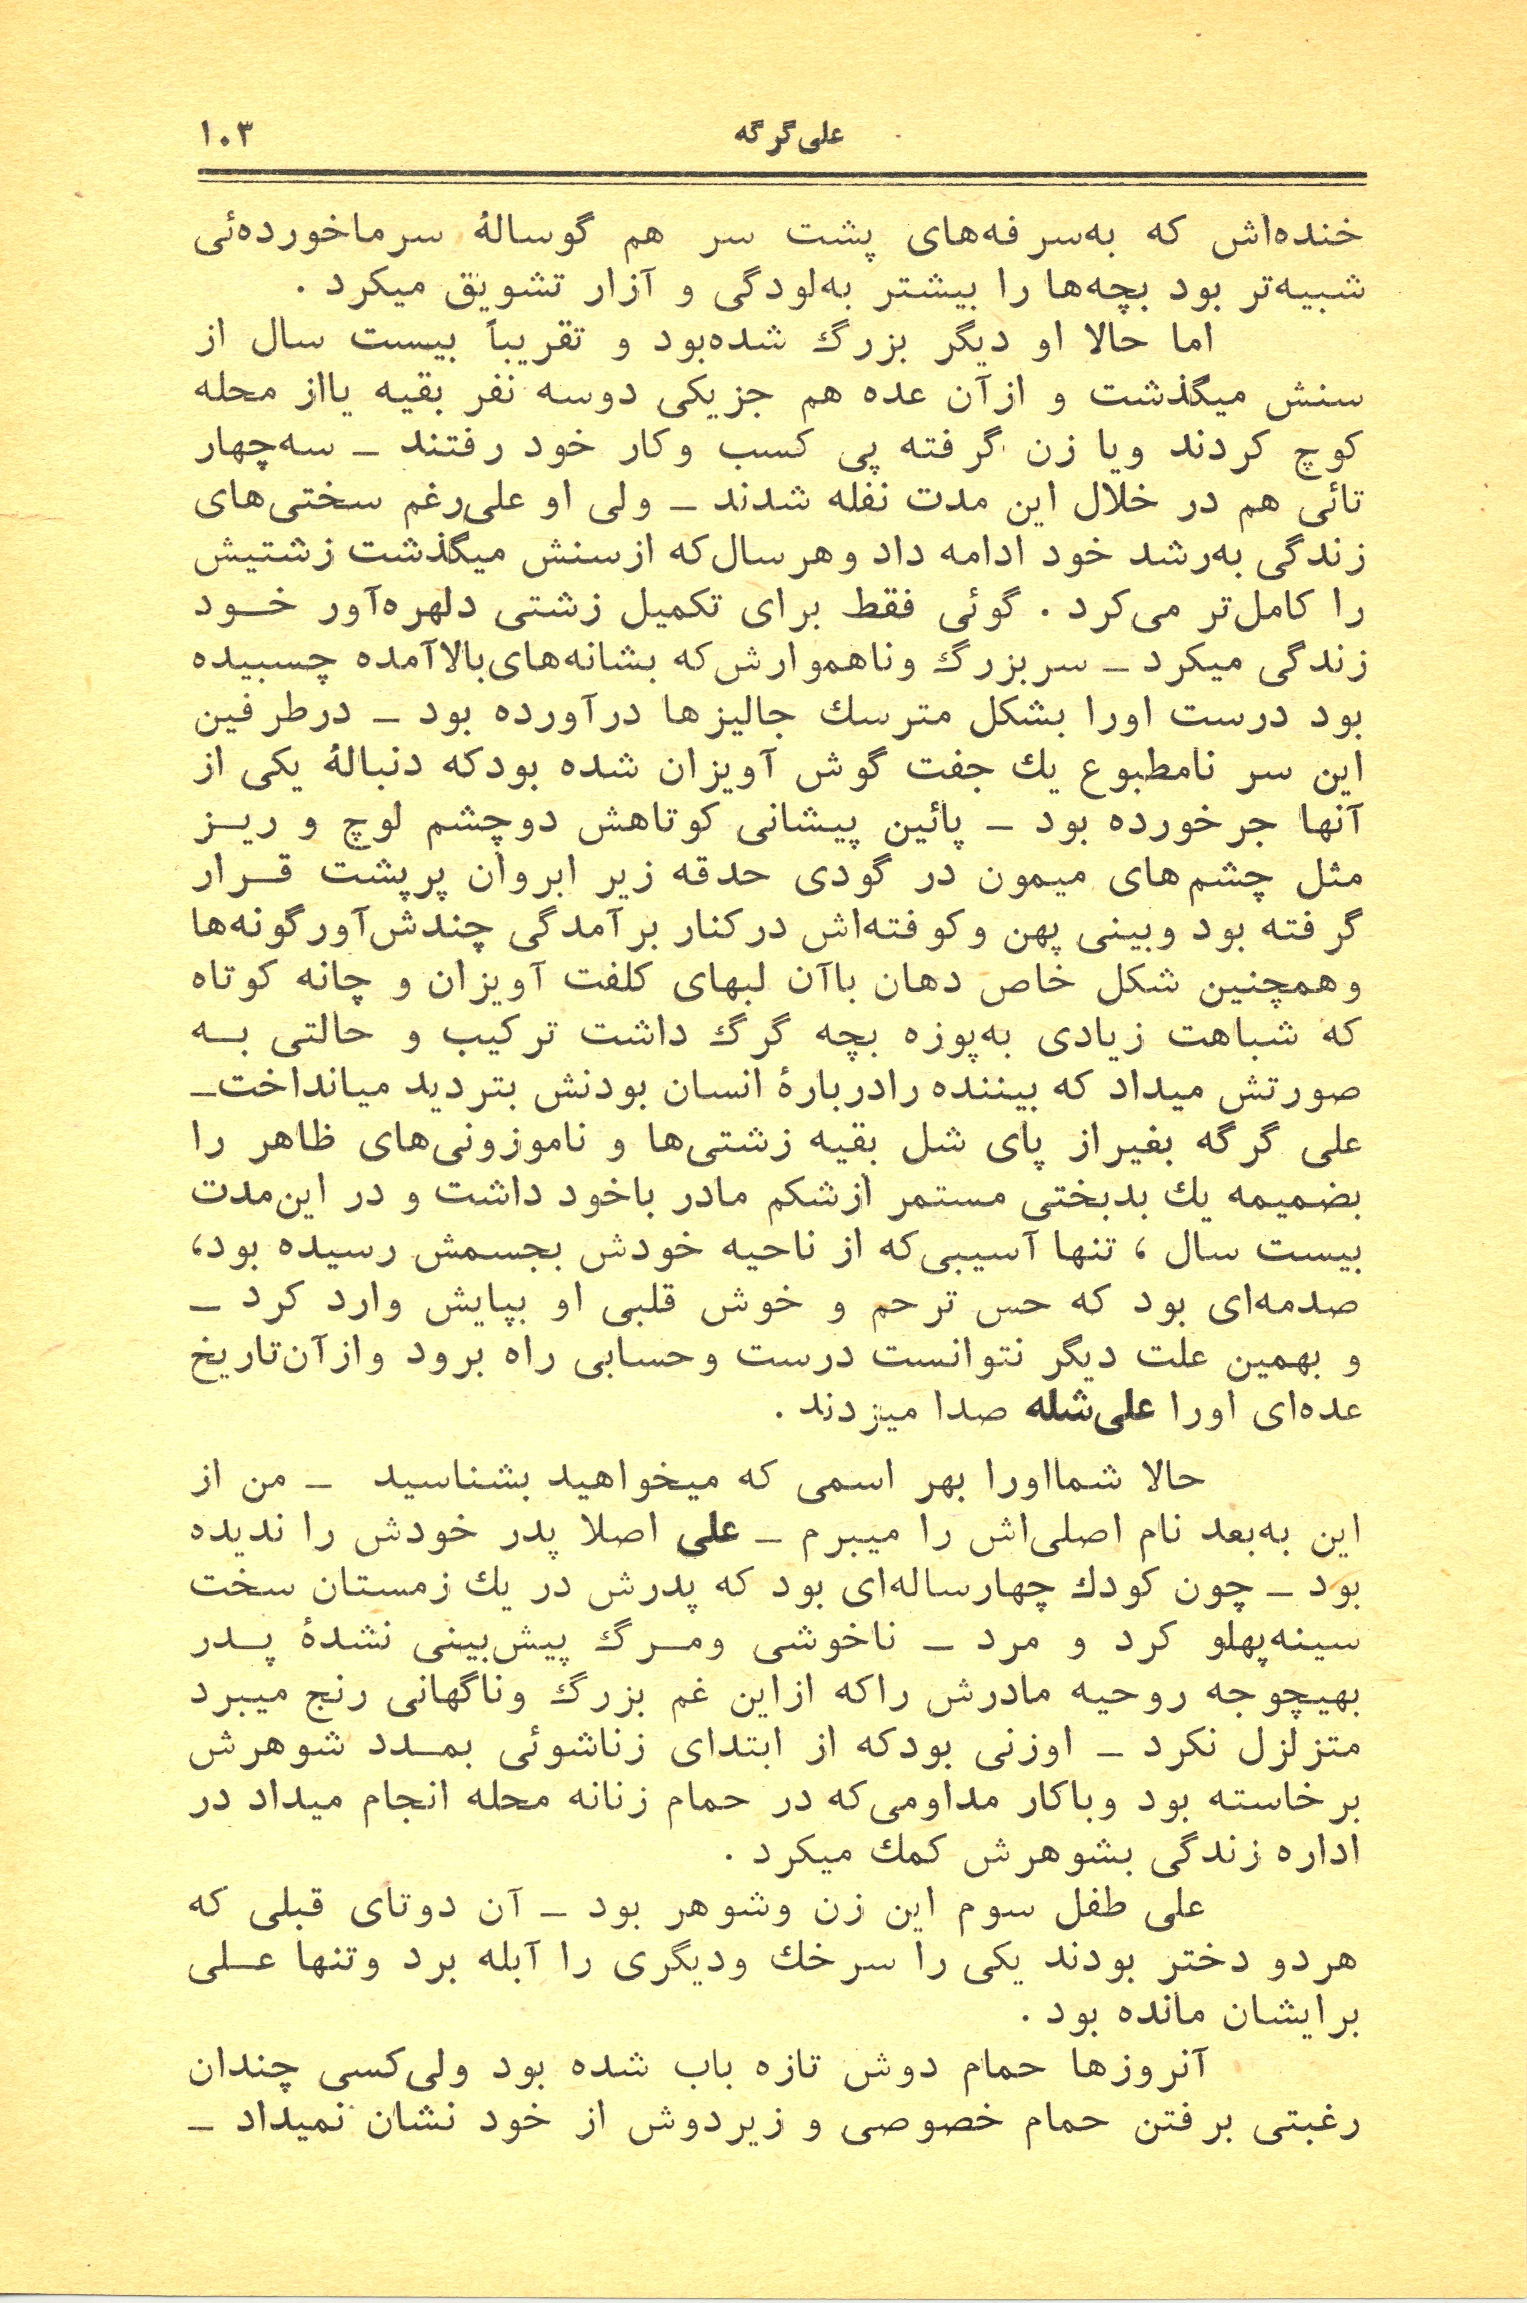 علی گرگه ۱۰۳
خنده‌اش که به‌سرفه‌های پشت سر هم گوسالهٔ سرماخورده‌ئی
شبیه‌تر بود بچه‌ها را بیشتر به‌لودگی و آزار تشویق میکرد .
اما حالا او دیگر بزرگ شده‌بود و تقریباً بیست سال از
سنش میگذشت و ازآن عده هم جزیکی دوسه نفر بقیه یااز محله
کوچ کردند ویا زن گرفته پی کسب وکار خود رفتند ــ سه‌چهار
تائی هم در خلال این مدت نفله شدند ــ ولی او علی‌رغم سختی‌های
زندگی به‌رشد خود ادامه داد وهرسال‌که ازسنش میگذشت زشتیش
را کامل‌تر می‌کرد . گوئی فقط برای تکمیل زشتی دلهره‌آور خـــود
زندگی میکرد ــ سربزرگ وناهموارش‌که بشانه‌های‌بالاآمده چسبیده
بود درست اورا بشکل مترسك جالیزها درآورده بود ــ درطرفین
این سر نامطبوع یك جفت گوش آویزان شده بودکه دنبالهٔ یکی از
آنها جرخورده بود ــ پائین پیشانی کوتاهش دوچشم لوچ و ریــز
مثل چشم‌های میمون در گودی حدقه زیر ابروان پرپشت قــرار
گرفته بود وبینی پهن وکوفته‌اش درکنار برآمدگی چندش‌آورگونه‌ها
وهمچنین شکل خاص دهان باآن لبهای کلفت آویزان و چانه کوتاه
که شباهت زیادی به‌پوزه بچه گرگ داشت ترکیب و حالتی بــه
صورتش میداد که بیننده رادربارهٔ انسان بودنش بتردید میانداخت‌ــ
علی گرگه بغیراز پای شل بقیه زشتی‌ها و ناموزونی‌های ظاهر را
بضمیمه یك بدبختی مستمر ازشکم مادر باخود داشت و در این‌مدت
بیست سال ، تنها آسیبی‌که از ناحیه خودش بجسمش رسیده بود،
صدمه‌ای بود که حس ترحم و خوش قلبی او بپایش وارد کرد ــ
و بهمین علت دیگر نتوانست درست وحسابی راه برود وازآن‌تاریخ
عده‌ای اورا علی‌شله صدا میزدند .
حالا شمااورا بهر اسمی که میخواهید بشناسید ــ من از
این به‌بعد نام اصلی‌اش را میبرم ــ علی اصلا پدر خودش را ندیده
بود ــ چون کودك چهارساله‌ای بود که پدرش در یك زمستان سخت
سینه‌پهلو کرد و مرد ــ ناخوشی ومــرگ پیش‌بینی نشدهٔ پــدر
بهیچوجه روحیه مادرش راکه ازاین غم بزرگ وناگهانی رنج میبرد
متزلزل نکرد ــ اوزنی بودکه از ابتدای زناشوئی بمــدد شوهرش
برخاسته بود وباکار مداومی‌که در حمام زنانه محله انجام میداد در
اداره زندگی بشوهرش کمك میکرد .
علی طفل سوم این زن وشوهر بود ــ آن دوتای قبلی که
هردو دختر بودند یکی را سرخك ودیگری را آبله برد وتنها عــلی
برایشان مانده بود .
آنروزها حمام دوش تازه باب شده بود ولی‌کسی چندان
رغبتی برفتن حمام خصوصی و زیردوش از خود نشان نمیداد ــ